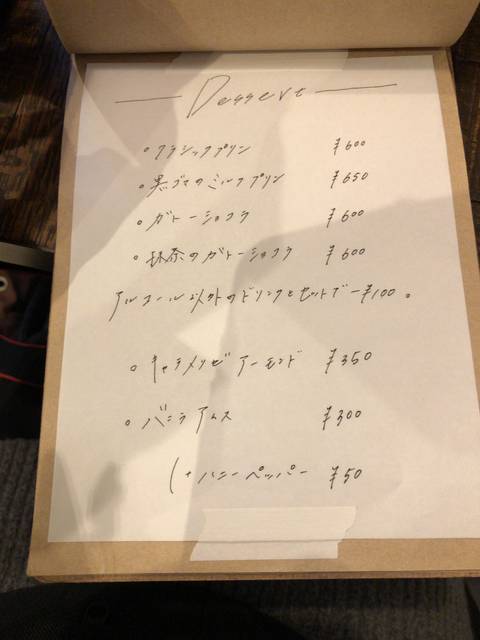 Dessert
・クラシックプリン ¥600
・黒ゴマのミルクプリン ¥650
・ガトーショコラ ¥600
・抹茶のガトーショコラ ¥600
アルコール以外のドリンクとセットで−¥100。
・キャラメリゼアーモンド ¥350
・バニラアイス ¥300
(+ハニーペッパー ¥50